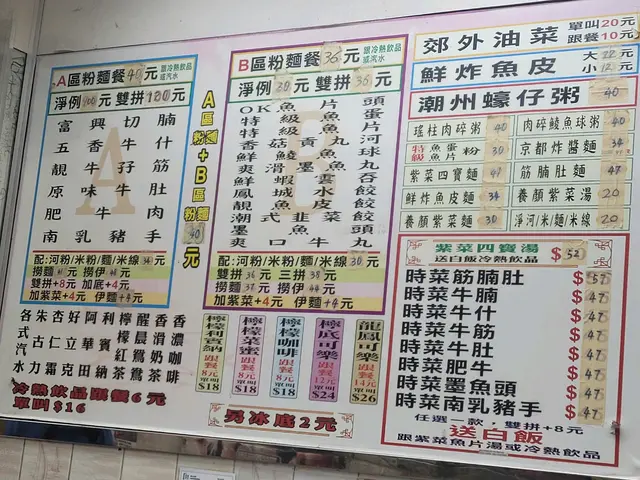 A區粉麵餐40元
跟冷熱飲品或汽水
淨例100元 雙拼180元
富興切腩
五香牛什
靚牛孖筋
原味牛肚
肥牛肉
南乳豬手
配:河粉/米粉/麵/米線34元
撈麵 元 撈伊 元
雙拼+8元 加底+4元
加紫菜+4元 伊麵 元
A區粉麵+B區粉麵40元
B區粉麵餐36元
跟冷熱飲品或汽水
淨例 元 雙拼36元
OK魚片頭
特級魚蛋
特級魚片
香菇貢丸河
鮮鯪魚球
爽滑墨魚丸
鮮蝦雲吞
鳳城水餃
靚魚皮餃
潮式韮菜餃
墨魚頭
爽口牛丸
配:河粉/米粉/麵/米線30元
雙拼36元 三拼38元
撈麵37元 撈伊44元
加紫菜+4元 伊麵+4元
郊外油菜
單叫20元
跟餐10元
鮮炸魚皮
大 元
小 元
潮州蠔仔粥 40
瑤柱肉碎粥 40
肉碎鯪魚球粥 40
特級魚蛋魚片粉 30
京都炸醬麵 34
紫菜四寶麵 47
筋腩肚麵 47
鮮炸魚皮麵 34
養顏紫菜湯 20
養顏紫菜麵 30
淨河/米/麵/米線 20
紫菜四寶湯
送白飯冷熱飲品
$52
時菜筋腩肚 $57
時菜牛腩 $47
時菜牛什 $47
時菜牛筋 $47
時菜牛肚 $47
時菜肥牛 $47
時菜墨魚頭 $47
時菜南乳豬手 $47
任選一款，雙拼+8元
送白飯
跟紫菜魚片湯或冷熱飲品
各式汽水
朱古力
杏仁霜
好立克
阿華田
利賓納
檸檬紅茶
醒晨鴛鴦
香滑奶茶
香濃咖啡
冷熱飲品跟餐6元
單叫$16
檸檬利賓納
跟餐8元
單叫$18
檸檬菜蜜
跟餐8元
單叫$18
檸檬咖啡
跟餐8元
單叫$18
檸底可樂
跟餐12元
單叫$24
龍鳳可樂
跟餐14元
單叫$26
另冰底2元